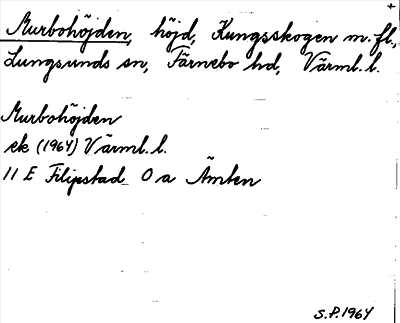 +
Murbohöjden, höjd, Kungsskogen m.fl.,
Lungsunds sn, Färnebo hd, Värml. l.
Murbohöjden
ek (1964) Värml. l.
11 E Filipstad 0 a Ämten
S.P. 1964